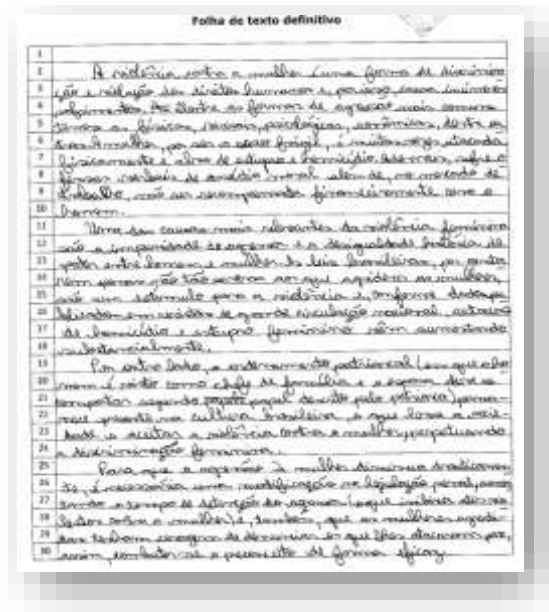 Folha de texto definitivo
1
2 A violência contra a mulher é uma forma de discrimina-
3 ção e violação dos direitos humanos e, por isso, causa inúmeros
4 sofrimentos. Dentre as formas de agressão mais comuns
5 temos as físicas, sexuais, psicológicas, econômicas, dentre ou-
6 tras. A mulher, por ser o sexo frágil, é muitas vezes atacada
7 fisicamente e alvo de estupro e homicídio. Ademais, sofre
8 verbais de assédio moral além de, no mercado de
9 trabalho, não ser recompensada financeiramente como o
10 homem.
11 Uma das causas mais relevantes da violência feminina
12 são a impunidade do agressor e a desigualdade histórica de
13 poder entre homem e mulher. As leis brasileiras, por
14 penas não tão contra aos que agridem as mulheres,
15 são um estímulo para a violência e, conforme dados pu-
16 blicados em revistas de grande circulação nacional, as taxas
17 de homicídio e estupro feminino vêm aumentando
18 substancialmente.
19 Por outro lado, o ordenamento patriarcal (em que o ho-
20 mem é visto como chefe de família e a esposa deve se
21 comportar segundo papel descrito pelo patriarca) perma-
22 nece presente na cultura brasileira, o que leva a socie-
23 dade a aceitar a violência contra a mulher, perpetuando
24 a discriminação feminina.
25 Para que a agressão à mulher diminua drasticamen-
26 te, é necessária uma modificação na legislação penal, aumen-
27 tando o tempo de detenção do agressor (o que inibiria
28 contra a mulher) e, também, que as mulheres agredi-
29 das tenham coragem de denunciar os que lhes atacaram para,
30 assim, combater-se a de forma eficaz.